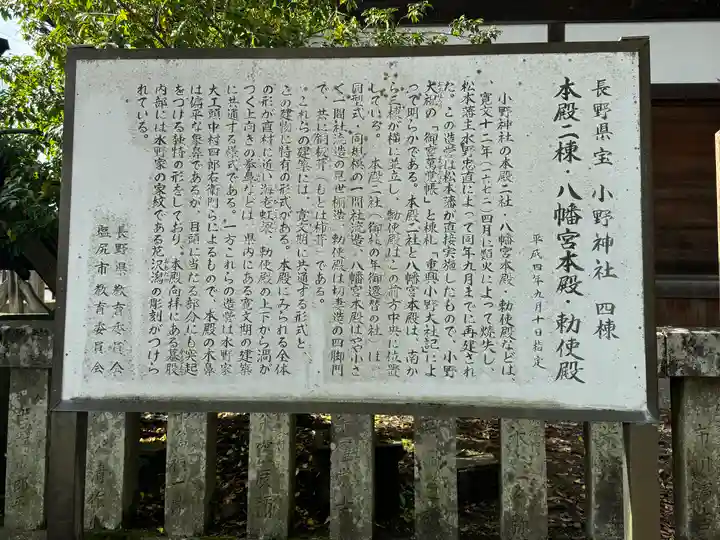 長野県宝 小野神社 四棟
本殿二棟・八幡宮本殿・勅使殿
平成四年九月十日指定
小野神社の本殿二社・八幡宮本殿、勅使殿などは、
寛文十二年(一六七二)四月に類火によって焼失し、
松本藩主水野忠直によって同年九月までに再建され
た。この造営は松本藩が直接実施したもので、小野
大祝の「御宮萬覚帳」と棟札「重興小野大社記」によ
って明らかである。本殿二社と八幡宮本殿は、南か
ら三棟が横に並立し、勅使殿はこの前方中央に位置
している。 本殿二社(御柱の年御遷替の社)は、
同型式、同規模の一間社流造、八幡宮本殿はやや小さ
く一間社流造の見世棚造、勅使殿は切妻造の四脚門
で、共に銅板葺(もとは杮葺)である。
これらの建築には、寛文期に共通する形式と、
この建物に特有の形式がある。本殿にみられる全体
の形が直材に近い海老虹梁、勅使殿の上下から渦が
つく上向きの拳鼻などは、県内にある寛文期の建築
に共通する様式である。一方これらの造営は水野家
大工頭中村四郎右衛門らによるもので、本殿の木鼻
は扁平な象鼻であるが、耳頭に当たる部分にも突起
をつける独特の形をしており、本殿向拝にある蟇股
内部には水野家の家紋である花沢瀉の彫刻がつけら
れている。
長野県教育委員会
塩尻市教育委員会